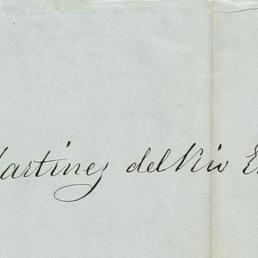 artinez del Rio E